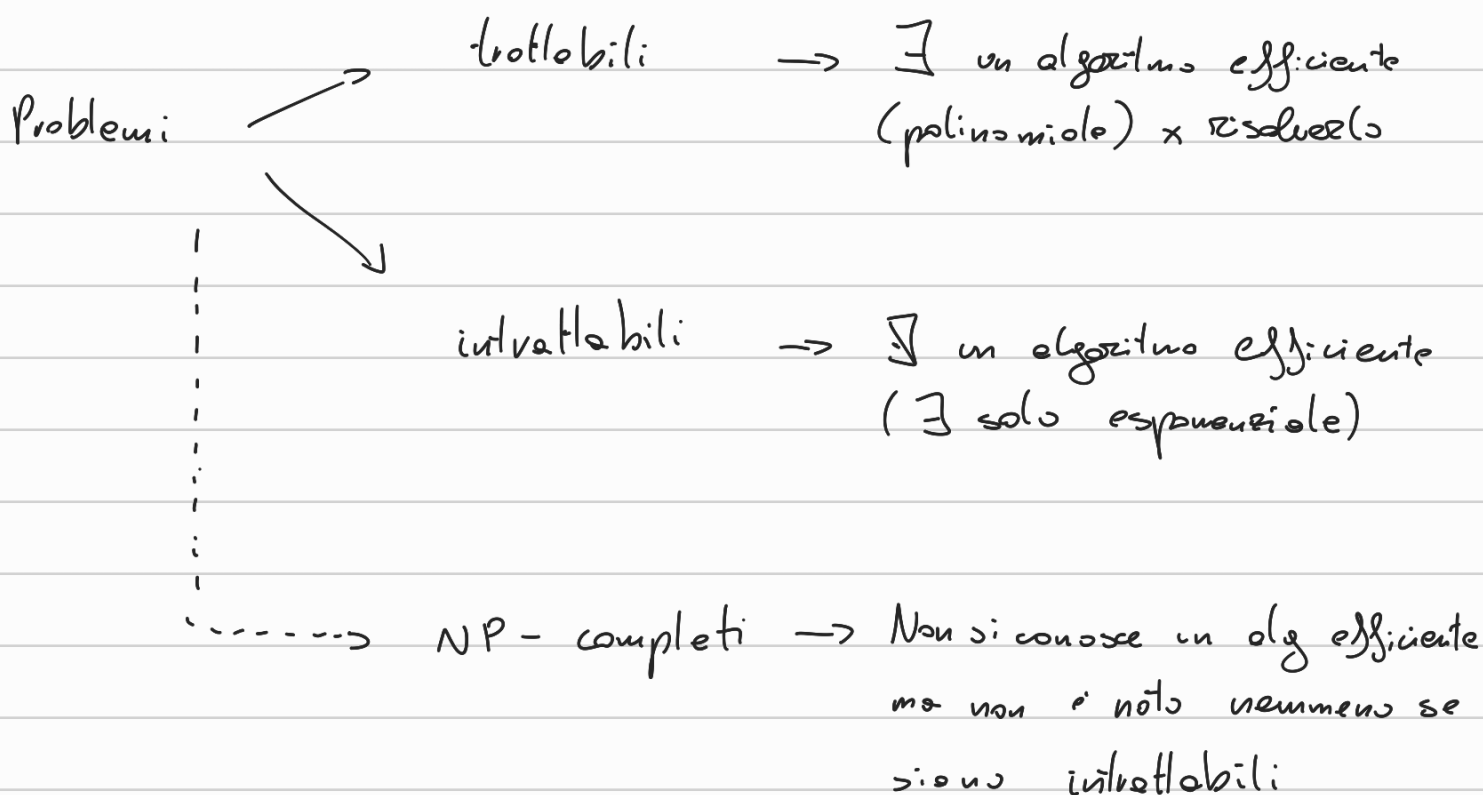 trattabili → ∃ un algoritmo efficiente
Problemi (polinomiale) x risolverlo
intrattabili → ∄ un algoritmo efficiente
(∃ solo esponenziale)
NP - completi → Non si conosce un alg efficiente
ma non è noto nemmeno se
siano intrattabili